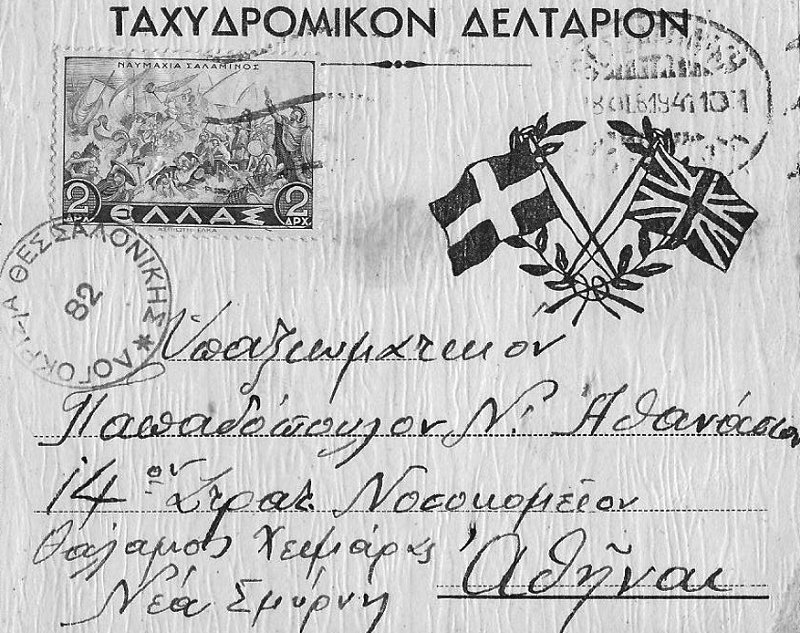 ΤΑΧΥΔΡΟΜΙΚΟΝ ΔΕΛΤΑΡΙΟΝ
ΝΑΥΜΑΧΙΑ ΣΑΛΑΜΙΝΟΣ
2 ΕΛΛΑΣ 2
ΔΡΧ. ΔΡΧ.
ΛΟΓΟΚΡΙΣΙΑ ΘΕΣΣΑΛΟΝΙΚΗΣ
82
Ὑπαξιωματικὸν
Παπαδόπουλον Ν. Ἀθανάσιον
14 ον Στρατ. Νοσοκομεῖον
Θάλαμος Χειμάρας Ἀθῆναι
Νέα Σμύρνη